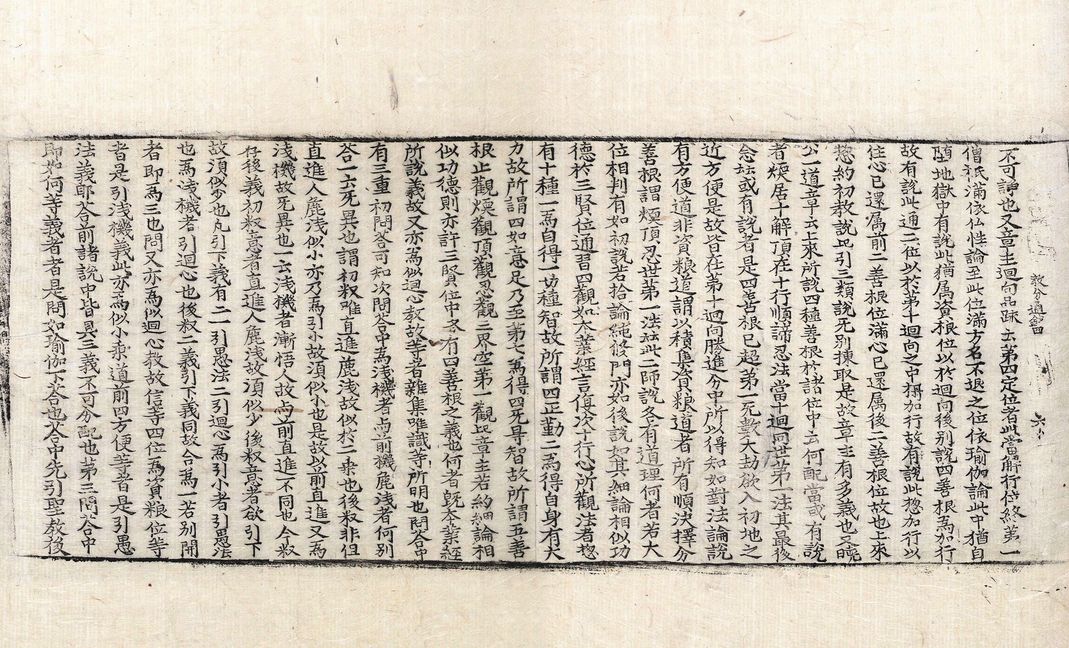 教分通釋四　六丈
不可諍也又章主迴向品疏云第四定位者此當解行位終第一
僧祇滿依仏性論至此位滿方名不退之位依瑜伽論此中猶自
随地獄中有說此猶属資粮位以於迴向後別說四善根為加行
故有說此通二位以於第十迴向之中得加行故有說此惣加行以
住心已還属前二善根位滿心已還属後二善根位故也上來
惣約初教說此引三類說先別揀取是故章主有多義也又晓
公一道章云上來所說四種善根於諸位中云何配當或有說
者煗居十解頂在十行順諦忍法當十迴向世第一法其最後
念故或有說者是四善根已超第一死數大劫欲入初地之
近方便是故皆在第十迴向勝進分中所以得知如對法論說
有方便道非資粮道謂以積集資粮道者所有順決擇分
善根謂煗頂忍世第一法故此二師說各有道理何者若大
位相判有如初說若拾論純修門亦如後說如其細論相似功
德於三賢位通習四觀如本業經言復次十行心所觀法者惣
有十種一為自得一切種智故所謂四正勤二為得自身有大
力故所謂四如意足乃至第六為得四无导智故所謂五善
根止觀煗觀頂觀忍觀三界空第一觀此章主若約細論相
似功德則亦許三賢位中各有四善根之義也何者旣本業經
所說義故又亦為似迴心教故等者雜集唯識等所明也問答中
有三重初問答可知次問答中為淺機者尚前機麁淺者何別
答一云死異也謂初教唯直進麁淺故似於二乘也後教非但
直進人麁淺似小亦乃為引小故須似小也是故以前直進又為
淺機故死異也一云淺機者漸悟人故尚前直進不同也今教
存後義初教意者直進人麁淺故須似少後教意者欲引下
故須似少也凡引下義有二一引愚法二引迴心為引小者引愚法
也為淺機者引迴心也後教二義引下義同故合為一若別開
者即為三也問又亦為似迴心教故信等四位為資粮位等
者是引淺機義此亦為似小乘道前四方便等者是引愚
法義耶答前諸說中皆具三義不可分配也第三問答中
即如何等義者者是問如瑜伽下答也答中先引聖教後